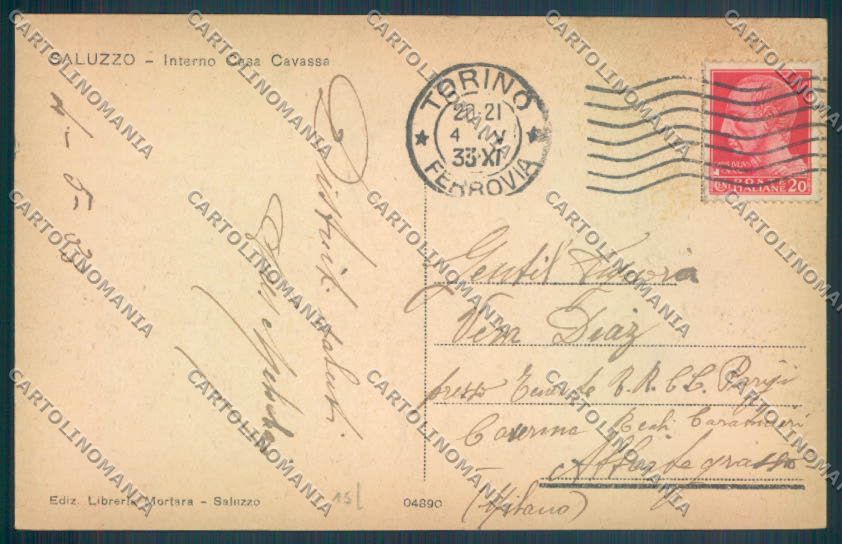 SALUZZO – Interno Casa Cavassa
Distinti saluti
TORINO
20-21
4 V
33 XI
FERROVIA
POSTE ITALIANE 20
Gentil
Diaz
presso Tenente R.R. C.C. Parigi
Caserma Reali Carabinieri
Abbiategrasso
(Milano)
Ediz. Libreria Mortara – Saluzzo
15/
04890
CARTOLINOMANIA